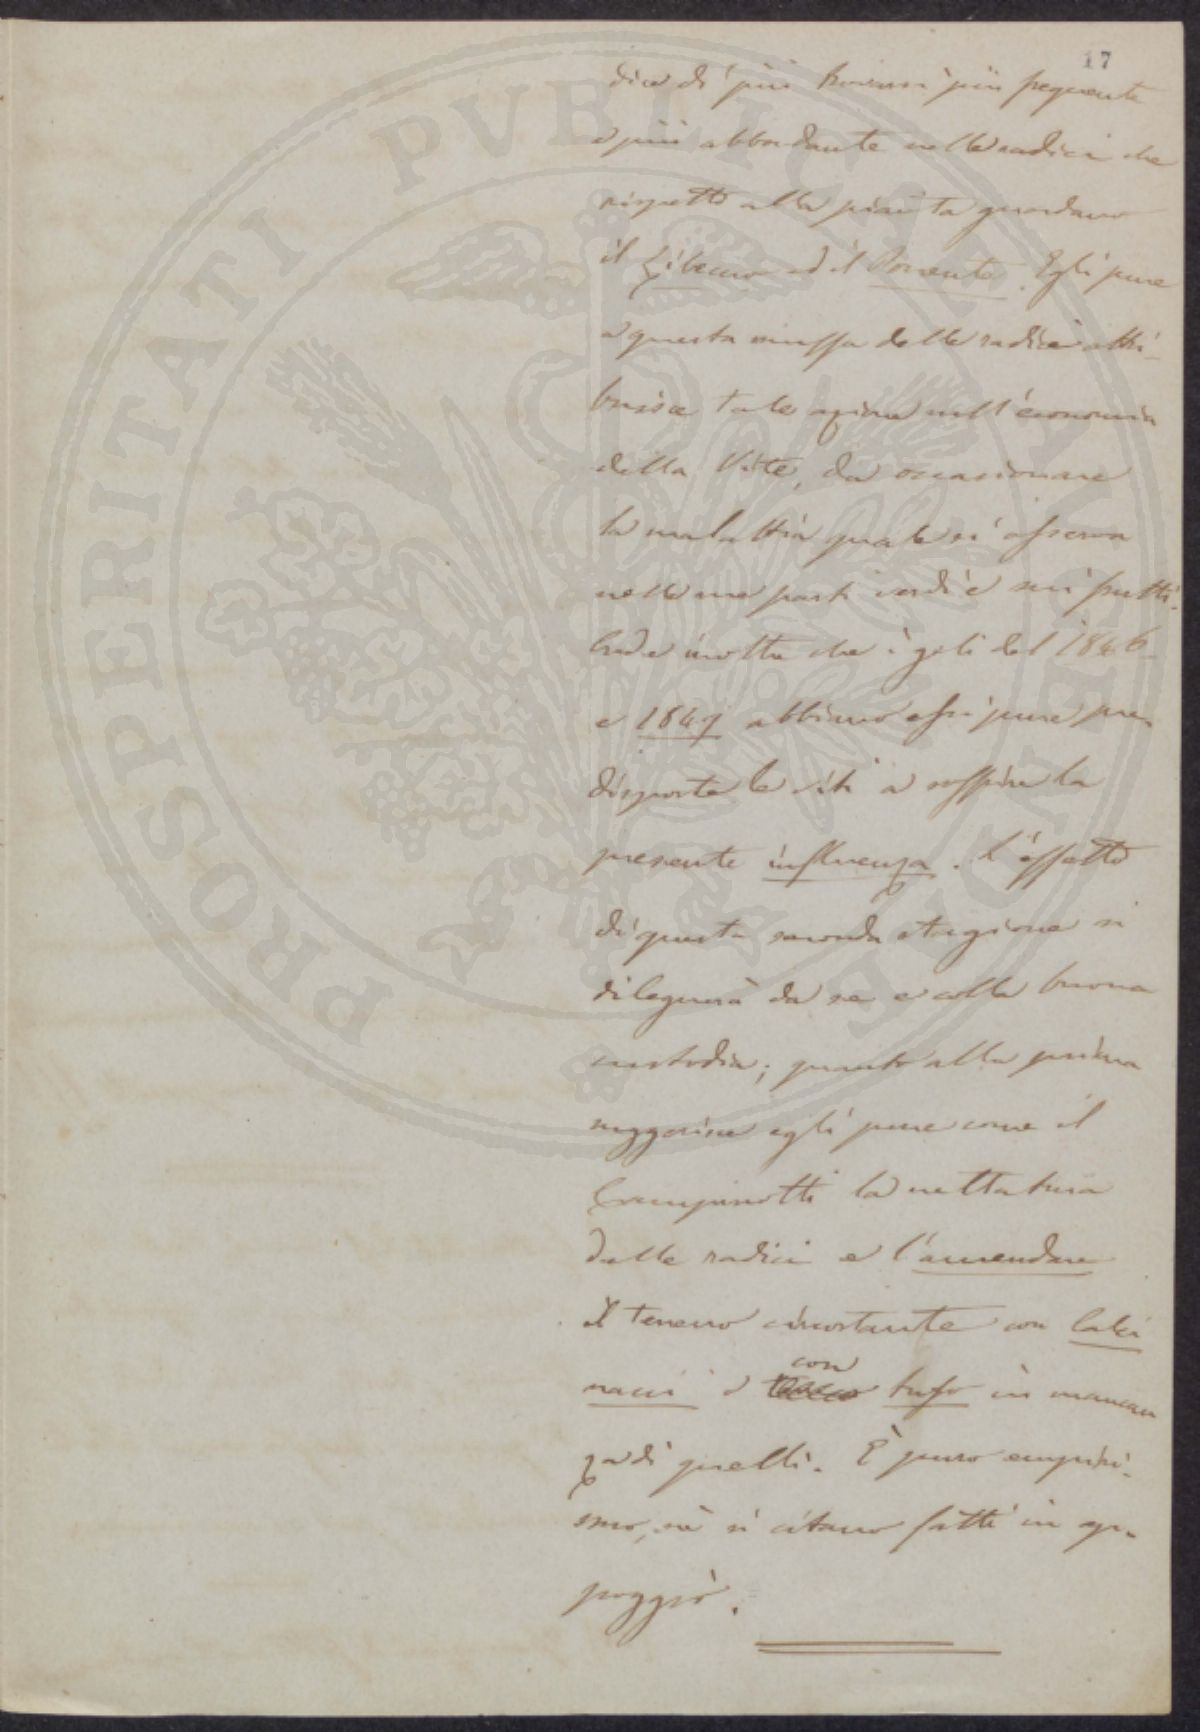 17
dice di più trovarsi più frequente
e più abbondante nelle radici che
rispetto alla pianta guardano
il Libeccio ed il Ponente. Egli pure
a questa muffa delle radici attri-
buisce tale azione nell'economia
della Vite, da occasionare
la malattia quale si osserva
nelle sue parti verdi e sui frutti.
Crede inoltre che i geli del 1846
e 1849 abbiano essi pure pre-
disposte le viti a soffrire la
presente influenza. L'effetto
di questa seconda stagione si
dileguerà da se e colla buona
custodia; quanto alla prima
suggerisce egli pure come il
la nettatura
delle radici e l'ammendare
il terreno circostante con calci
nacci o con tufo in mancan
za di quelli. È puro empiri-
smo, nè si citano fatti in ap-
poggio.
PROSPERITATI PUBLICAE AUGENDAE